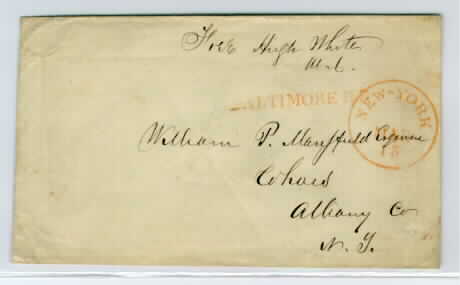 Free Hugh White
M.C.
BALTIMORE R.
NEW-YORK
18
William P. Mansfield Esquire
Cohoes
Albany Co
N. Y.